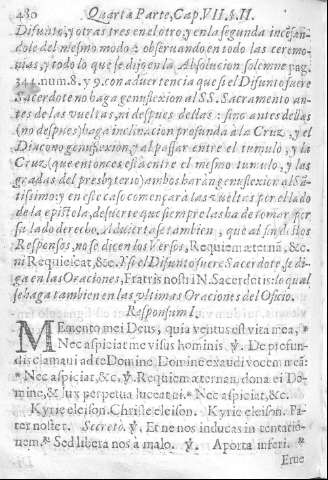 480 Quarta Parte, Cap. VII. §. II.
Difunto, y otras tres en el otro, y en la segunda incẽsan-
dole del mesmo modo: observando en todo las ceremo-
nias, y todo lo que se dijo en la Absolucion solemne pag.
344. num. 8. y 9. con advertencia que si el Difunto fuere
Sacerdote no haga genuflexion al SS. Sacramento an-
tes de las vueltas, ni despues dellas: sino antes dellas
(no despues) haga inclinacion profunda à la Cruz, y el
Diacono genuflexion, y al passar entre el tumulo, y la
Cruz (que entonces està entre el mesmo tumulo, y las
gradas del presbyterio) ambos haràn genuflexion al Sã-
tissimo: y en este caso començarà las vueltas por el lado
de la epistola, de suerte que siempre las ha de tomar por
su lado derecho. Advierta se tambien, que al fin de los
Responsos, no se dicen los Versos, Requiem æternã, &c.
ni Requiescat, &c. Y si el Difunto fuere Sacerdote, se di-
ga en las Oraciones, Fratris nostri N. Sacerdotis: lo qual
se haga tambien en las vltimas Oraciones del Oficio.
Responsum I.
MEmento mei Deus, quia ventus est vita mea, *
Nec aspiciat me visus hominis. ℣. De profun-
dis clamavi ad te Domine, Domine exaudi vocem meã:
* Nec aspiciat, &c. ℣. Requiem æternam dona ei Do-
mine, & lux perpetua luceat ei. * Nec aspiciat, &c.
Kyrie eleison. Christe eleison. Kyrie eleison. Pa-
ter noster. Secretò. ℣. Et ne nos inducas in tentatio-
nem. ℟. Sed libera nos à malo. ℣. A porta inferi. ℟.
Erue